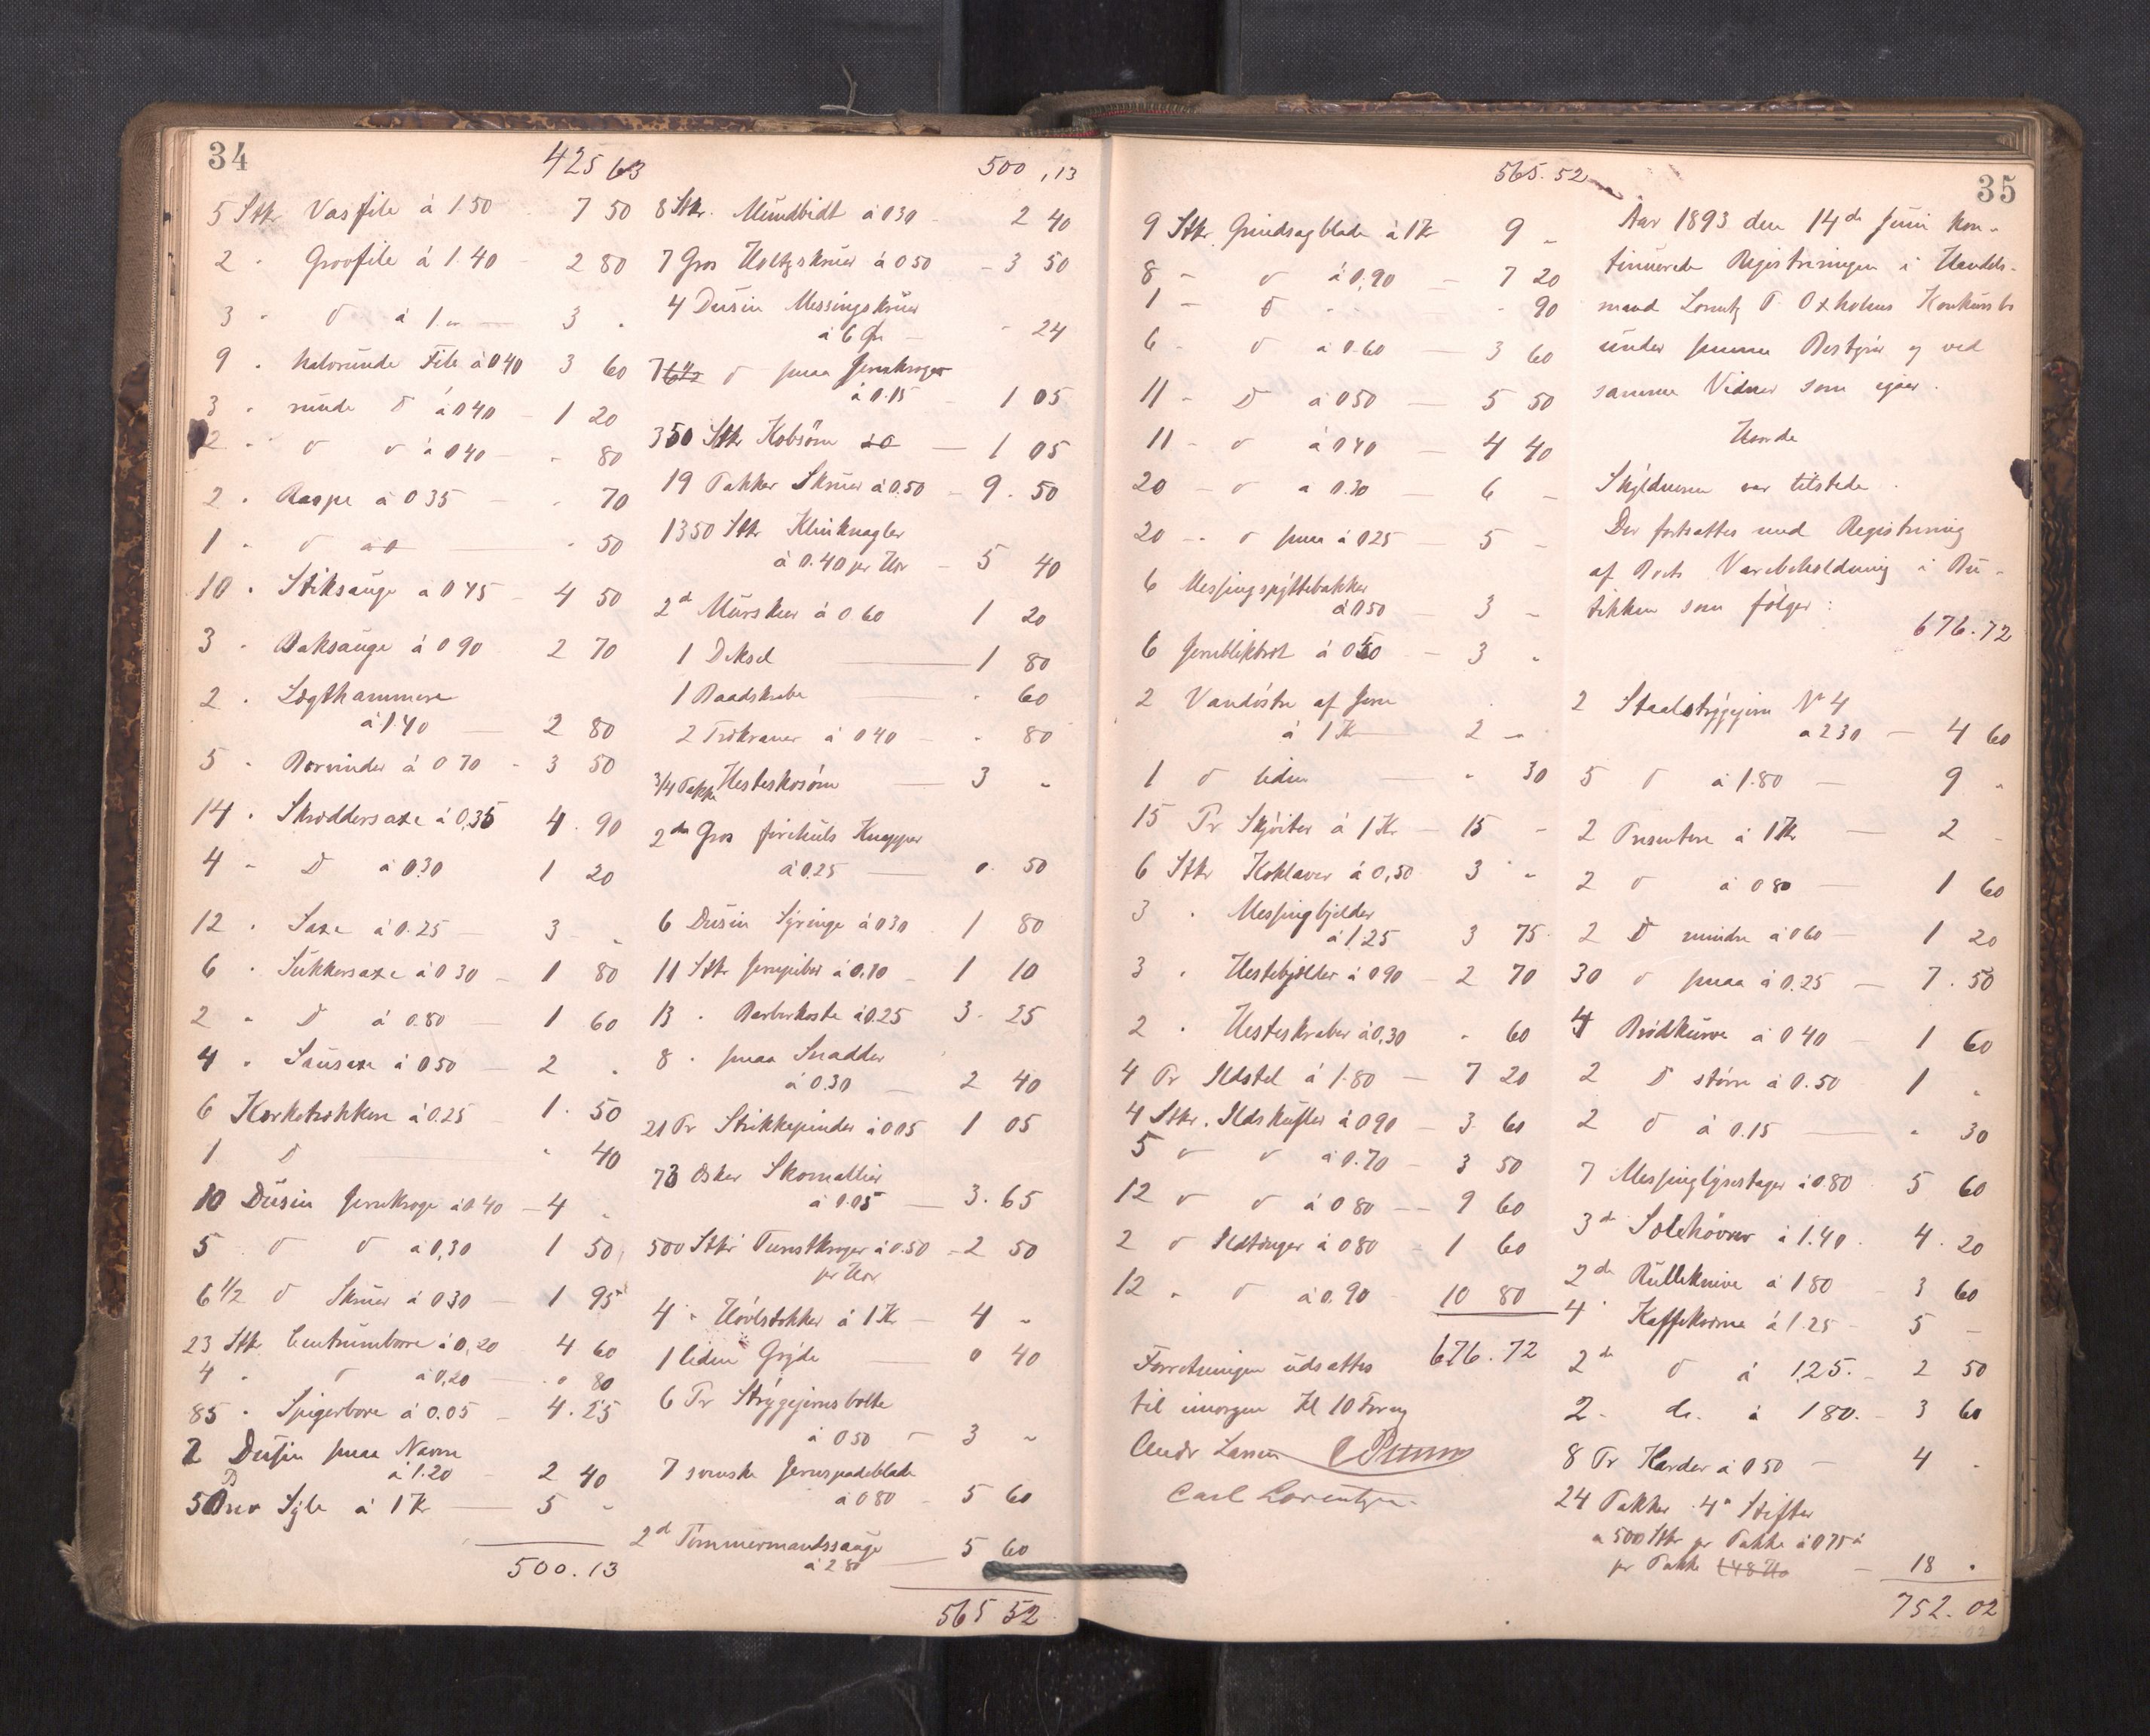 34
425 63
5 Stkr Vasfile á 1.50 7 50
2 " Grovfile á 1.40 - 2 80
3 " d á 1 " - 3 "
9 " halvrunde File á 0 40 3 60
3 " runde d á 0 40 - 1 20
2 " d d á 0 40 - " 80
2 " Raspe á 0 35 - " 70
1 " d " 50
10 " Stiksauge a 0 45 - 4 50
3 " Baksauge á 0 90 2 70
2 " Lægthammere
á 1.40 - 2 80
5 " Borvinder á 0 70 - 3 50
14 " Skræddersaxe á 0,35 4 . 90
4 " D á 0.30 1 20
12 " Saxe á 0.25 - 3 "
6 " Sukkersaxe á 0 30 - 1 80
2 " D á 0.80 - 1 60
4 " Sausaxe á 0 50 - 2 "
6 Korketrækkere á 0.25 1 . 50
1 D - " 40
10 Dusin Jernkroge á 0 40 - 4 "
5 d d á 0,30 1 50
6 1/2 d Skruer á 0 30 - 1 95
23 Stkr Centrumbore á 0,20 4 60
4 " d á 0,20 - " 80
85 " Spigerbore á 0.05 - 4.25
2 Dusin smaa Navre
á 1.20 - 2 40
5 Syle á 1 Kr - 5 "
500.13
500,13
8 Stkr. Mundbidt á 0 30 - 2 40
7 Gros Holtzskruer á 0 50 - 3 50
4 Dusin Messingskruer
á 6 Ør - " 24
7 d smaa Jernkroger
á 0.15 - 1 05
350 Stkr Kobsøm - 1 05
19 Pakker Skruer á 0.50 - 9.50
1350 Stkr Klinknagler
á 0.40 pr Hdr - 5 40
2 d Murskeer á 0 60 1 20
1 Deksel - 1 80
1 Baadskrabe - " 60
2 Trækraner á 0 40 - " 80
3/4 Pakke Hesteskosøm - 3 "
2 de Gros firehuls Knapper
á 0.25 - " 50
6 Dusin Syringe á 0 30 1 80
11 Stkr Jernpiber á 0.10 - 1 10
13 " Barberkoste á 0.25 3.25
8 " smaa Snadder
á 0.30 - 2 40
21 Pr Strikkepinder á 0 05 1 05
73 Æsker
á 0.05 - 3.65
500 Stkr á 0.50 - 2 50
pr Hdr
4 " Høvlstokker á 1 Kr - 4 "
1 liden Gryde - " 40
6 Pr Strygejernsbolte
á 0 50 - 3 "
7 svenske Jernspadeblade
á 0 80 - 5 60
2 d Tømmermandssauge
á 2 80 - 5 60
565 52
35
565.52
9 Stkr. Grindsagblade á 1 Kr 9 "
8 - d á 0.90 - 7 20
1 - d - " 90
6 - d á 0.60 - 3 60
11 - D á 0 50 - 5 50
11 - d á 0 40 - 4 40
20 - d a 0.30 - 6 "
20 - d smaa á 0 25 - 5 "
6 Messingspyttebakker
á 0 50 - 3 "
6 Jernblikbret á 0 50 - 3 "
2 Vandøstre af Jern
á 1 Kr - 2 "
1 d liden - " 30
15 Pr Skjøiter á 1 Kr - 15 "
6 Stkr Koklaver á 0,50 3 "
3 " Messingbjelder
á 1.25 3 75
3 " Hestebjelder á 0 90 - 2 70
2 " Hesteskraber á 0,30 " 60
4 Pr Ildstel á 1.80 - 7 20
4 Stkr. Ildskuffer á 0 90 - 3 60
5 d d á 0.70 - 3 50
12 d d á 0 80 - 9 60
2 d Ildtænger á 0 80 - 1 60
12 " d á 0.90 10 80
676.72
Forretningen udsattes
til imorgen Kl 10 Form
Andr Larsen
Carl Lorentzen
Aar 1893 den 14de Juni kon-
tinuerede Registreringen i Handels-
mand Lorentz P. Oxholms Konkursbo
under samme Bestyrer og ved
samme Vidner som igaar.
Hvorda
Skyldneren var tilstede.
Der fortsattes med Registrering
af Boets Varebeholdning i Bu-
tikken som følger:
676.72
2 Staalstrygejern No 4
a 2 30 - 4 60
5 d á 1.80 - 9 "
2 Presentere á 1 Kr - 2 "
2 d á 0 80 - 1 60
2 D mindre á 0 60 - 1 20
30 d smaa á 0.25 - 7.50
4 Brødkurve á 0 40 - 1 60
2 D større á 0.50 1 "
2 d á 0.15 - " 30
7 Messinglysestager á 0.80 5 60
3 d á 1.40 . 4.20
2 de Rulleknive á 1 80 - 3 60
4 " Kaffekværne á 1.25 - 5 -
2 de d á 1.25. - 2 50
2 - de. á 1 80. - 3 60
8 Pr Karder á 0 50 - 4 "
24 Pakker 4" Stifter
a 500 Stkr pr Pakke á 0 75
pr Pakke - 18 "
752.02